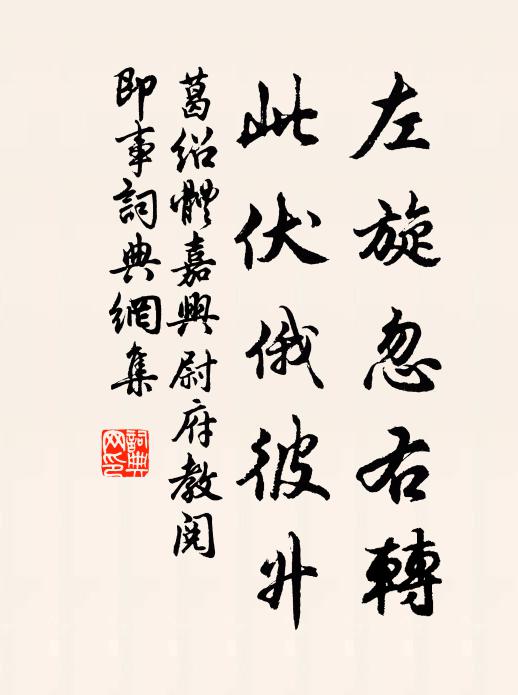 左旋忽右轉
此伏俄彼升
葛紹體嘉興尉府教閱
即事詞典網集
詞典網印